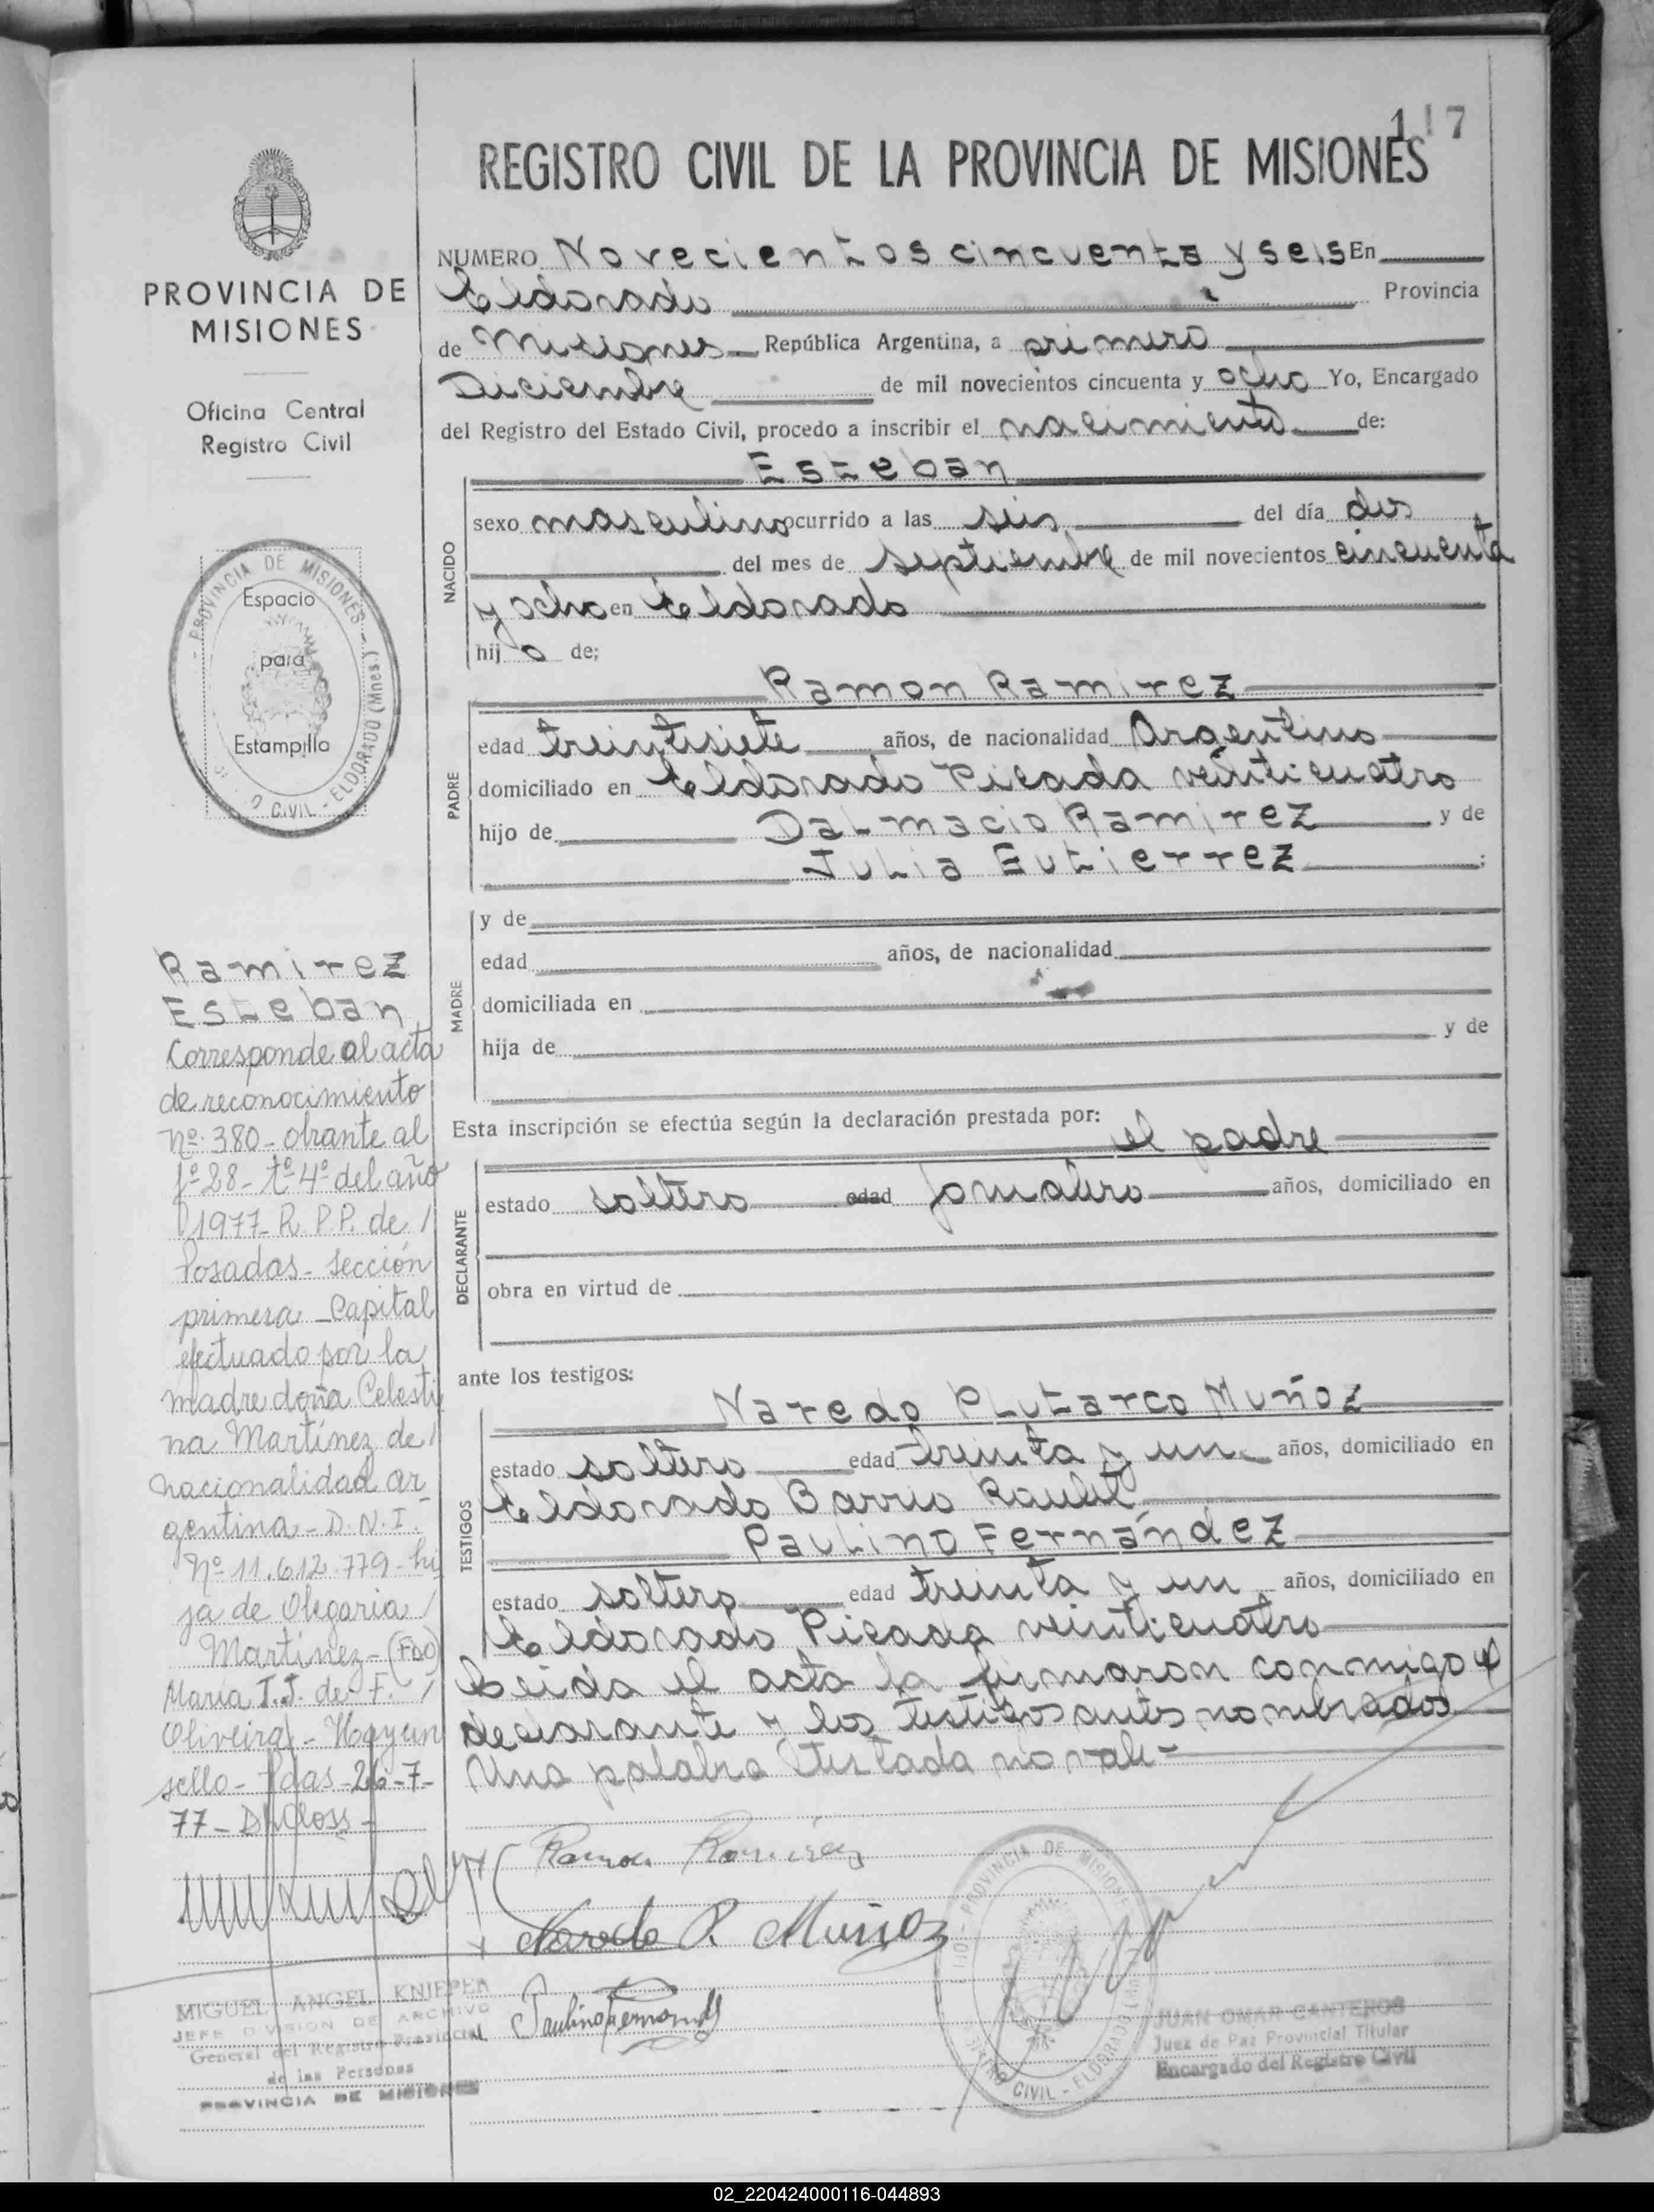 117
REGISTRO CIVIL DE LA PROVINCIA DE MISIONES
PROVINCIA DE
MISIONES
Oficina Central
Registro Civil
PROVINCIA DE MISIONES - ELDORADO (Mnes.)
Espacio
para
Estampilla
O CIVIL
NUMERO Novecientos cincuenta y seis En
Eldorado Provincia
de Misiones República Argentina, a primero
Diciembre de mil novecientos cincuenta y ocho Yo, Encargado
del Registro del Estado Civil, procedo a inscribir el nacimiento de:
Esteban
NACIDO
sexo masculino ocurrido a las seis del día dos
del mes de septiembre de mil novecientos cincuenta
y ocho en Eldorado
hij o de;
Ramon Ramirez
PADRE
edad treintisiete años, de nacionalidad Argentino
domiciliado en Eldorado Picada veinticuatro
hijo de Dalmacio Ramirez y de
Julia Gutierrez ;
MADRE
y de
edad años, de nacionalidad
domiciliada en
hija de y de
Esta inscripción se efectúa según la declaración prestada por: el padre
DECLARANTE
estado soltero edad jornalero años, domiciliado en
obra en virtud de
ante los testigos:
Naredo Plutarco Muñoz
TESTIGOS
estado soltero edad treinta y un años, domiciliado en
Eldorado Barrio
Paulino Fernández
estado soltero edad treinta y un años, domiciliado en
Eldorado Picada veinticuatro
Leida el acta la firmaron conmigo el
declarante y los testigos antes nombrados
Una palabra testada no vale-
Ramon Ramirez
Naredo P. Muñoz
Paulino Fernandez
Ramirez
Esteban
Corresponde al acta
de reconocimiento
nº 380- obrante al
fº 28- tº 4º del año
1977- R. P.P. de /
Posadas- sección
primera - Capital
efectuado por la
madre doña Celesti
na Martínez de /
nacionalidad ar_
gentina - D.N.I.
Nº 11.612.779 - hi
ja de Olegaria /
Martínez - (FDO)
María T.J. de F. /
Oliveira - Hay un
sello - Pdas - 26-7-
77-
MIGUEL ANGEL KNIEPER
JEFE DIVISION DE ARCHIVO
General del Registro Provincial
de las Personas
PROVINCIA DE MISIONES
PROVINCIA DE MISIONES
CIVIL - ELDORADO
JUAN OMAR CANTEROS
Juez de Paz Provincial Titular
Encargado del Registro Civil
02_220424000116-044893